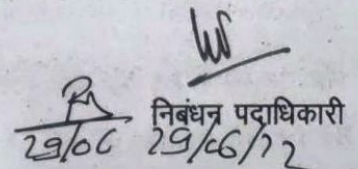 निबंधन पदाधिकारी
29/06 29/06/22